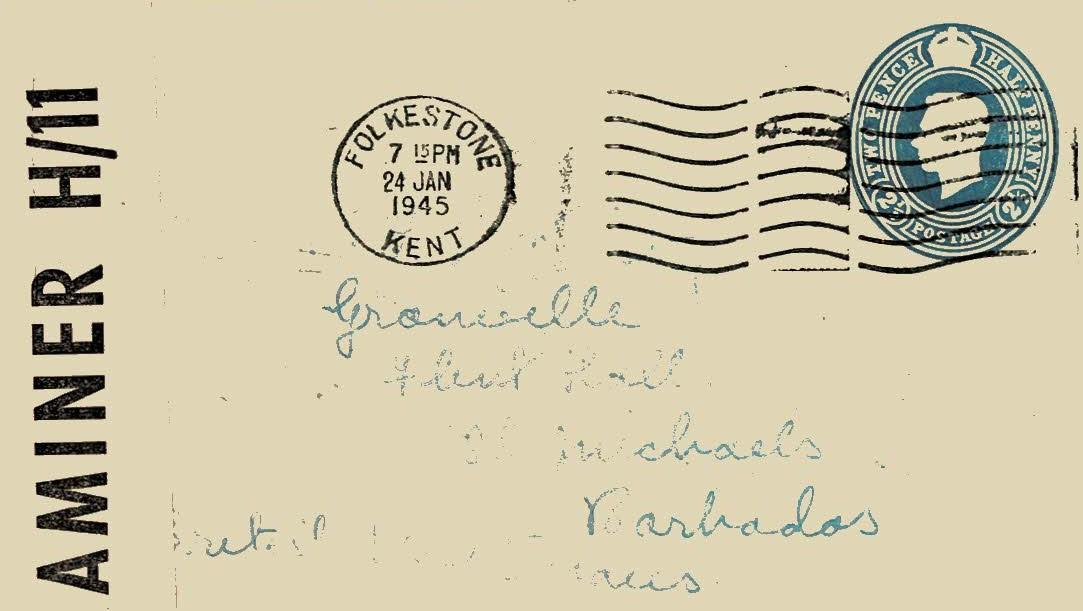 AMINER H/11
FOLKESTONE
7 15 PM
24 JAN
1945
KENT
TWO PENCE HALF PENNY
2½ POSTAGE 2½
Granville
Flint Hall
St Michaels
Barbados